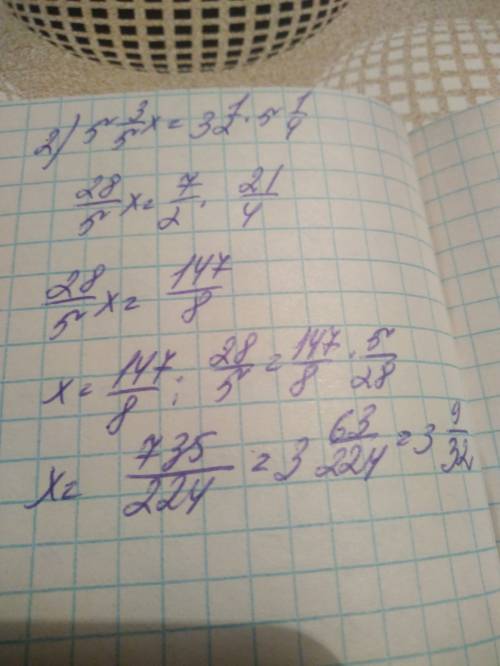 2) 5 3/5 x = 3 1/2 · 5 1/4
28/5 x = 7/2 · 21/4
28/5 x = 147/8
x = 147/8 : 28/5 = 147/8 · 5/28
x = 735/224 = 3 63/224 = 3 9/32